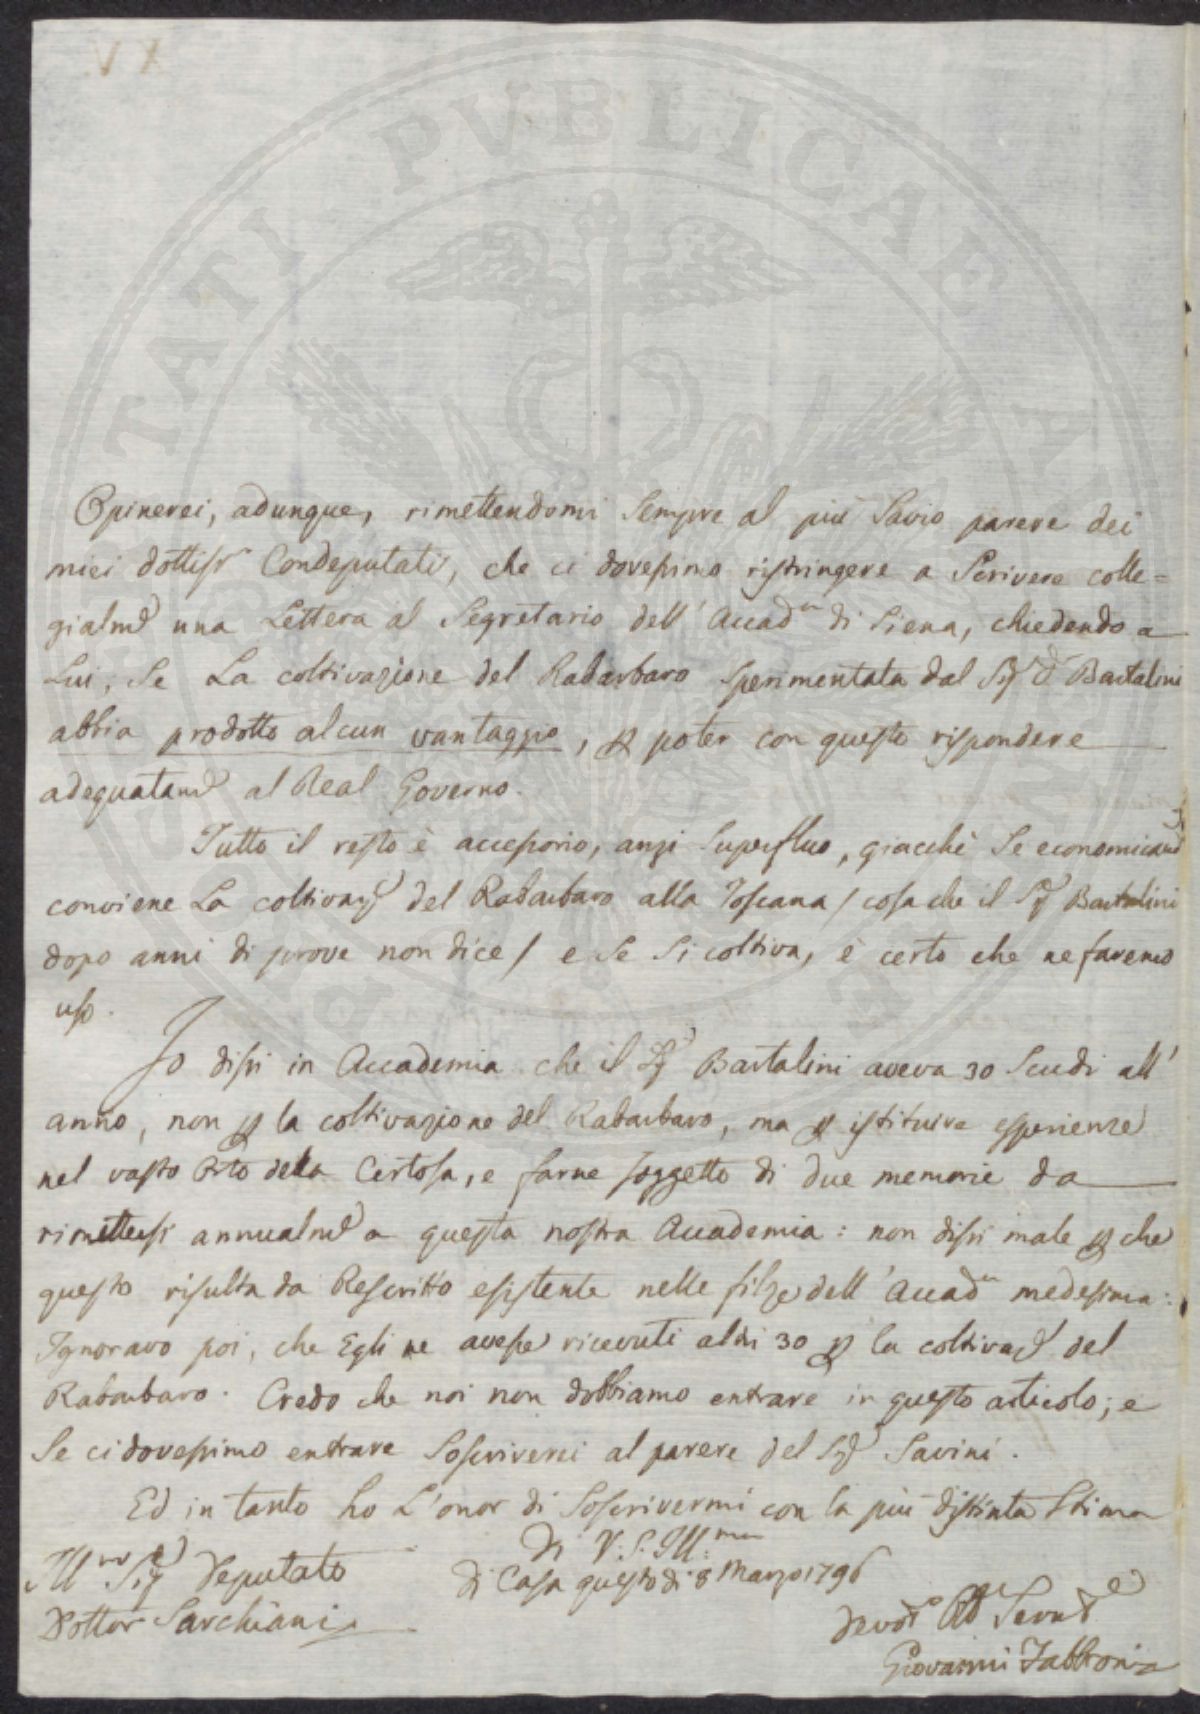 Opinerei, adunque, rimettendomi sempre al più Savio parere dei
miei dottiss.i Condeputati, che ci dovessimo ristringere a Scrivere colle=
gialm.e una Lettera al Segretario dell' Accad.a di Siena, chiedendo a
Lui, Se La coltivazione del Rabarbaro sperimentata dal Sig.e D.r Bartalini
abbia prodotto alcun vantaggio, p poter con questo rispondere
adequatam.e al Real Governo.
Tutto il resto è accessorio, anzi Superfluo, giacchè Se economicam.e
conviene La coltivaz.e del Rabarbaro alla Toscana / cosa che il Sig.e Bartalini
dopo anni di prove non dice / e Se Si coltiva, è certo che ne faremo
uso.
Io dissi in Accademia che il Sig.e Bartalini aveva 30 Scudi all'
anno, non p la coltivazione del Rabarbaro, ma p istituire esperienze
nel vasto Orto della Certosa, e farne soggetto di due memorie da
rimettersi annualm.e a questa nostra Accademia: non dissi male p che
questo risulta da Rescritto esistente nelle filze dell' Accad.a medesima:
Ignoravo poi, che Egli ne avesse ricevuti altri 30 p la coltivaz.e del
Rabarbaro. Credo che noi non dobbiamo entrare in questo articolo; e
Se ci dovessimo entrare Soscriverei al parere del Sig.e Savini.
Ed in tanto ho L'onor di Soscrivermi con la più distinta Stima
Di V. S. Ill:ma
Ill.mo Sig.e Deputato
di Casa questo dì 8 Marzo 1796
Dottor Sarchiani
Giovanni Fabbroni
PUBLICAE